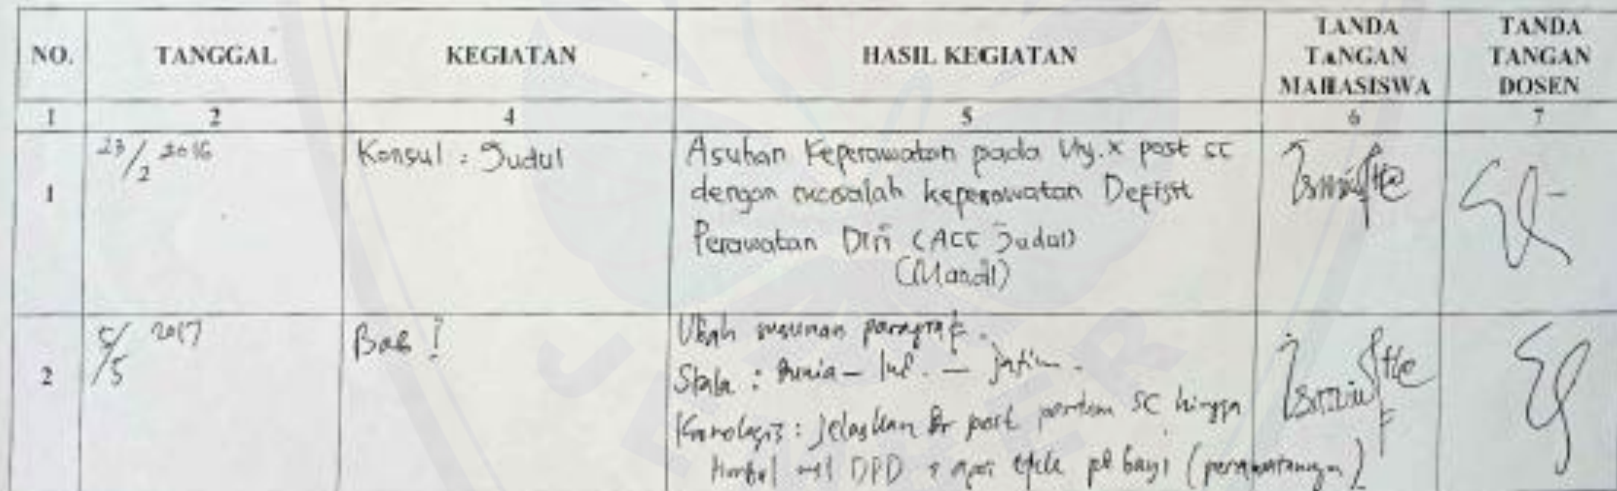 NO. TANGGAL KEGIATAN HASIL KEGIATAN TANDA TANGAN MAHASISWA TANDA TANGAN DOSEN
1 2 4 5 6 7
1 23/2 2016 Konsul : Judul Asuhan Keperawatan pada Ny.x post sc
dengan masalah keperawatan Defisit
Perawatan Diri (ACC Judul)
(Mandi)
2 5/5 2017 Bab I Ubah susunan paragraf.
Skala : Dunia - Ind. - Jatim.
Kronologis : jelaskan post partum SC hingga
timbul DPD & apa efek bayi (perawatannya)